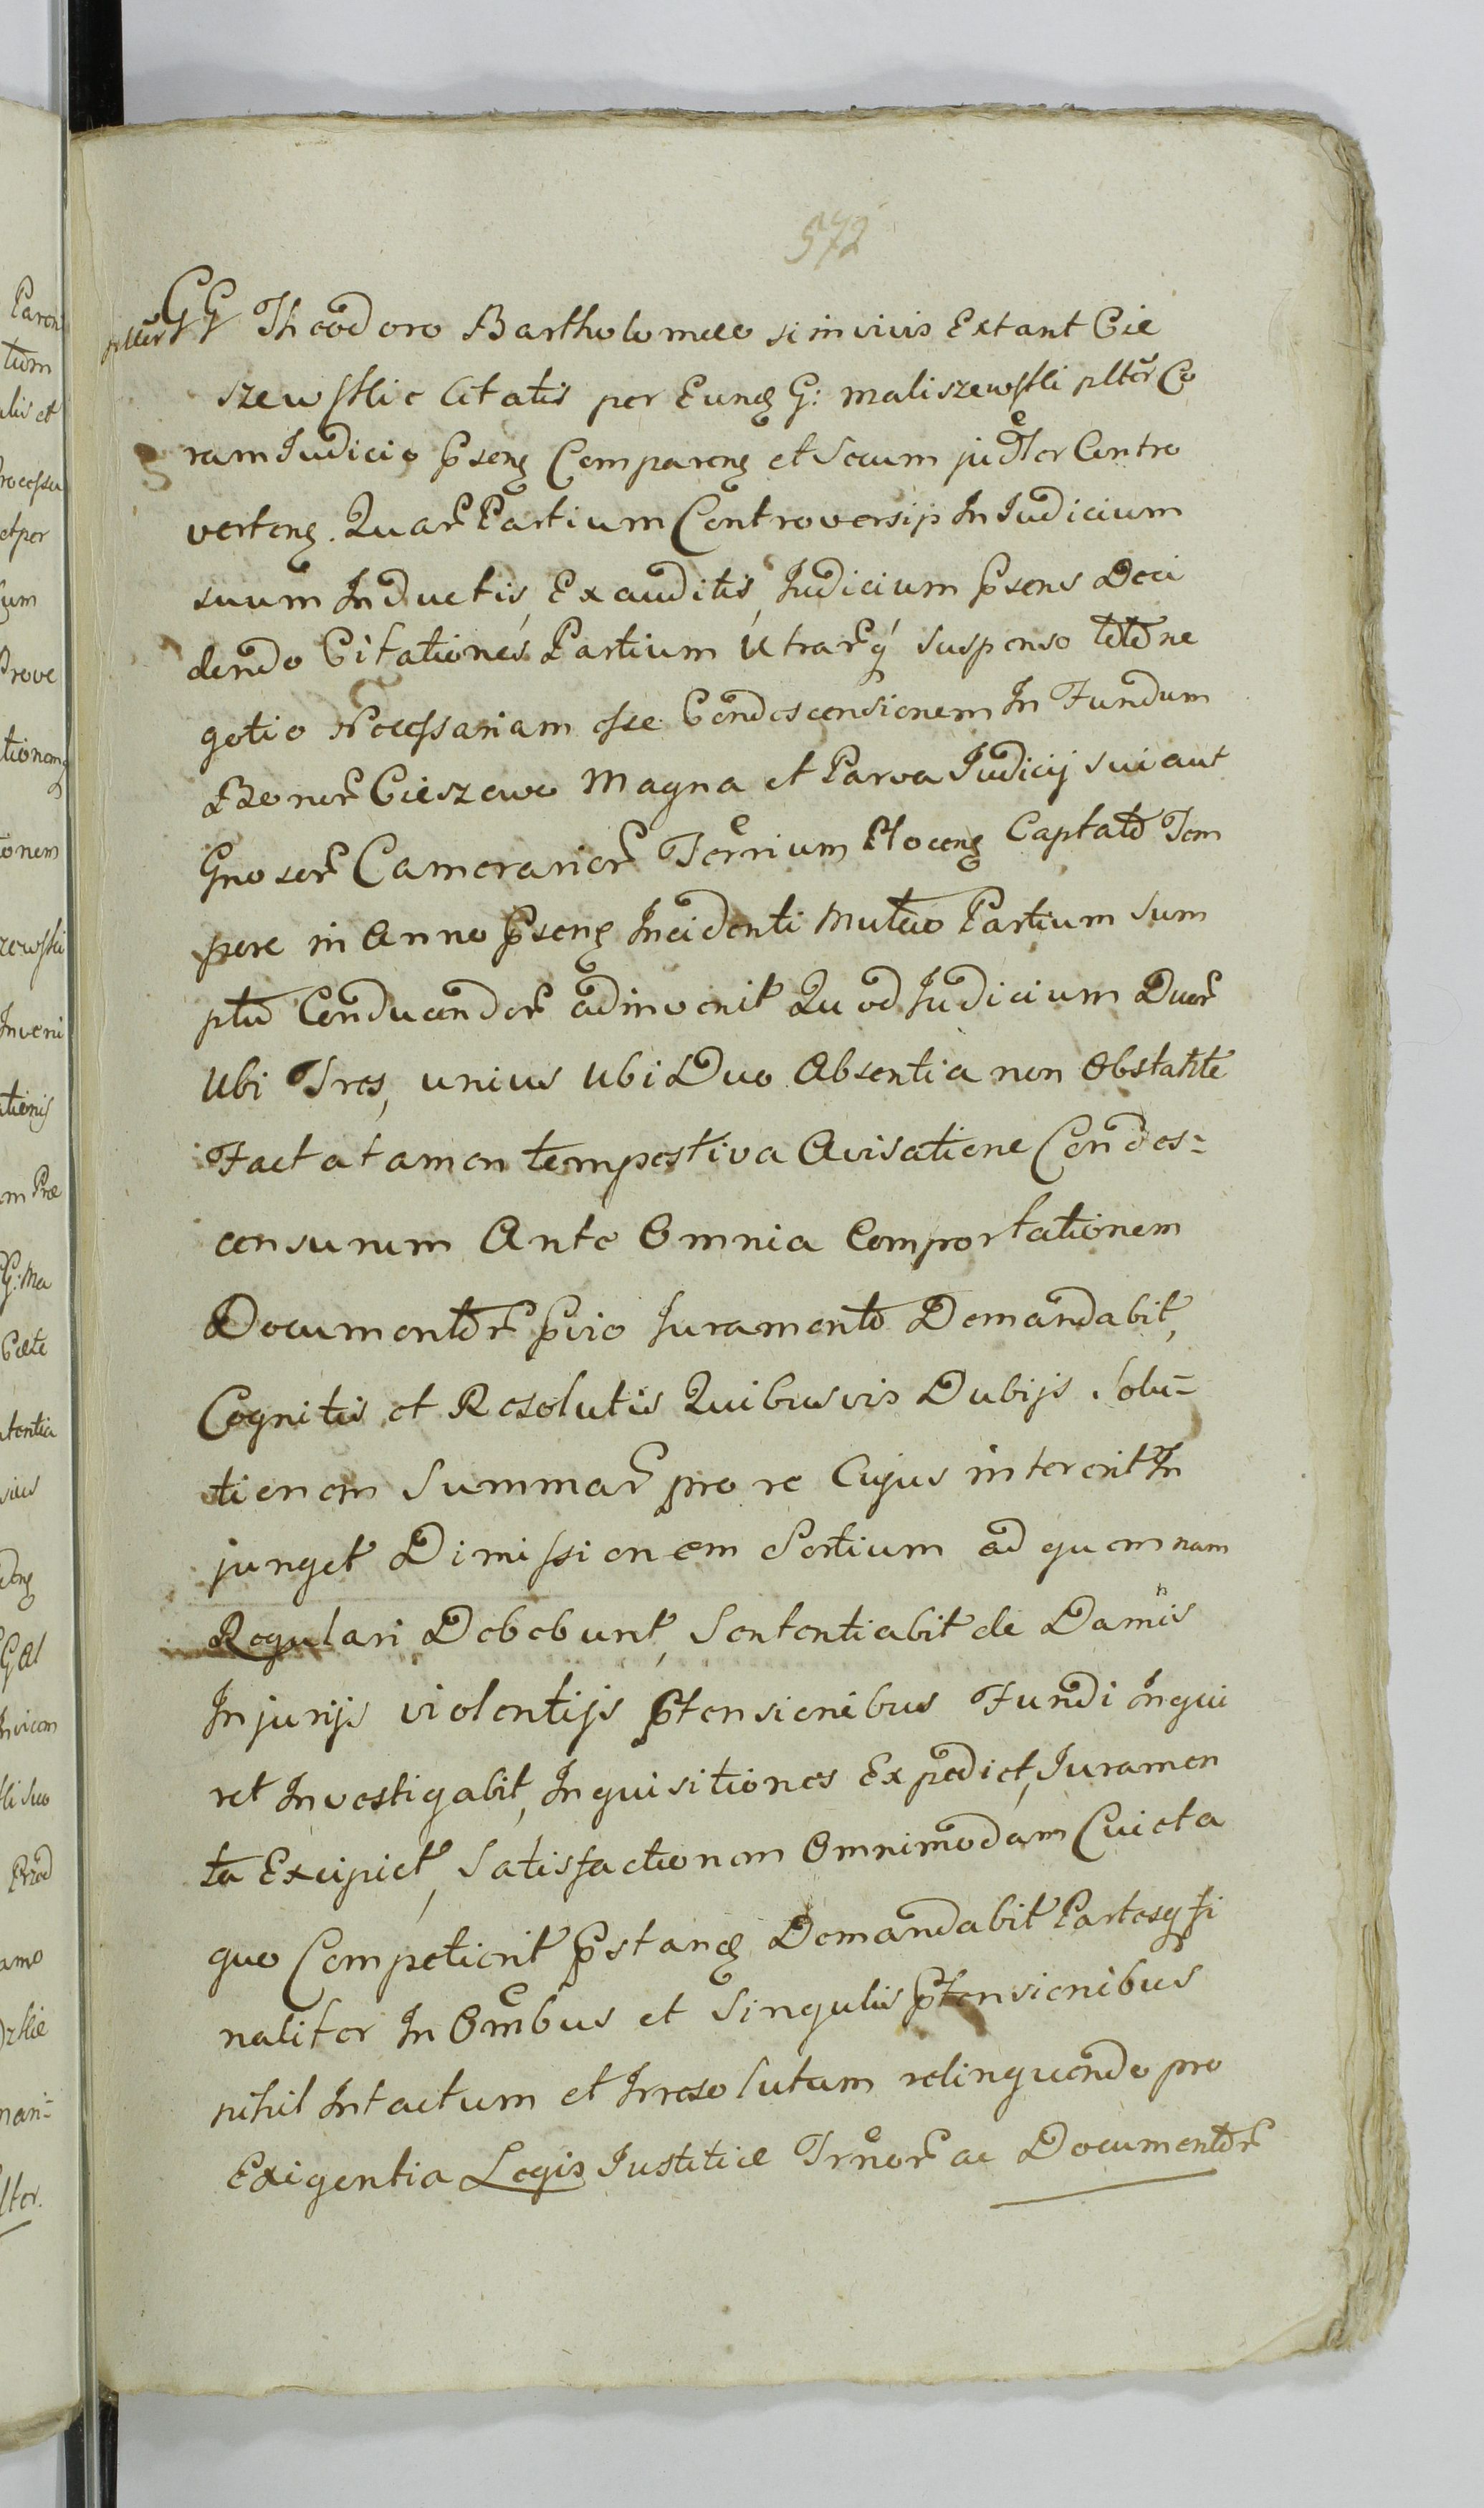 572
plter GG Theodoro Bartholomeo si in vivis Extant Cie
szewskie Citatis per Eund G: Maliszewski plter Co
ram Judicio Pseng Compareng et Secum judter Contro
verteng. Quar Partium Controversijs In Judicium
suum Inductis, Exauditis, Judicium Psens Deci
dendo Citationes Partium Utrarq suspenso toto ne
gotio Necessariam esse Condescensionem In Fundum
Bonor Cieszewo Magna et Parva Judicij sui aut
Gnosor Camerarior Terrium Ploceng Captato Tem
pore in Anno Pseng Incidenti Mutuo Partium Sum
ptu Conducendor adinvenit Quod Judicium Duor
Ubi Tres, unius Ubi Duo Absentia non Obstante
Facta tamen tempestiva Avisatione Condes=
censurum Ante Omnia Comportationem
Documentor Pvio Juramento Demandabit,
Cognitis et Resolutis Quibusvis Dubijs Solu=
tionem Summar pro re Cujus intererit In
junget Dimissionem Sortium ad quem nam
Regulari Debebunt, Sententiabit de Damnis
Injurijs violentijs Ptensionibus Fundi Inqui
ret Investigabit, Inquisitiones Expediet, Juramen
ta Excipiet, Satisfactionem Omnimodam Cui et a
quo Competierit Pstand Demandabit Partesq fi
naliter In Ombus et Singulis Ptensionibus
nihil Intactum et Irresolutum relinquendo pro
Exigentia Legis Justitiae Trnor ac Documentor